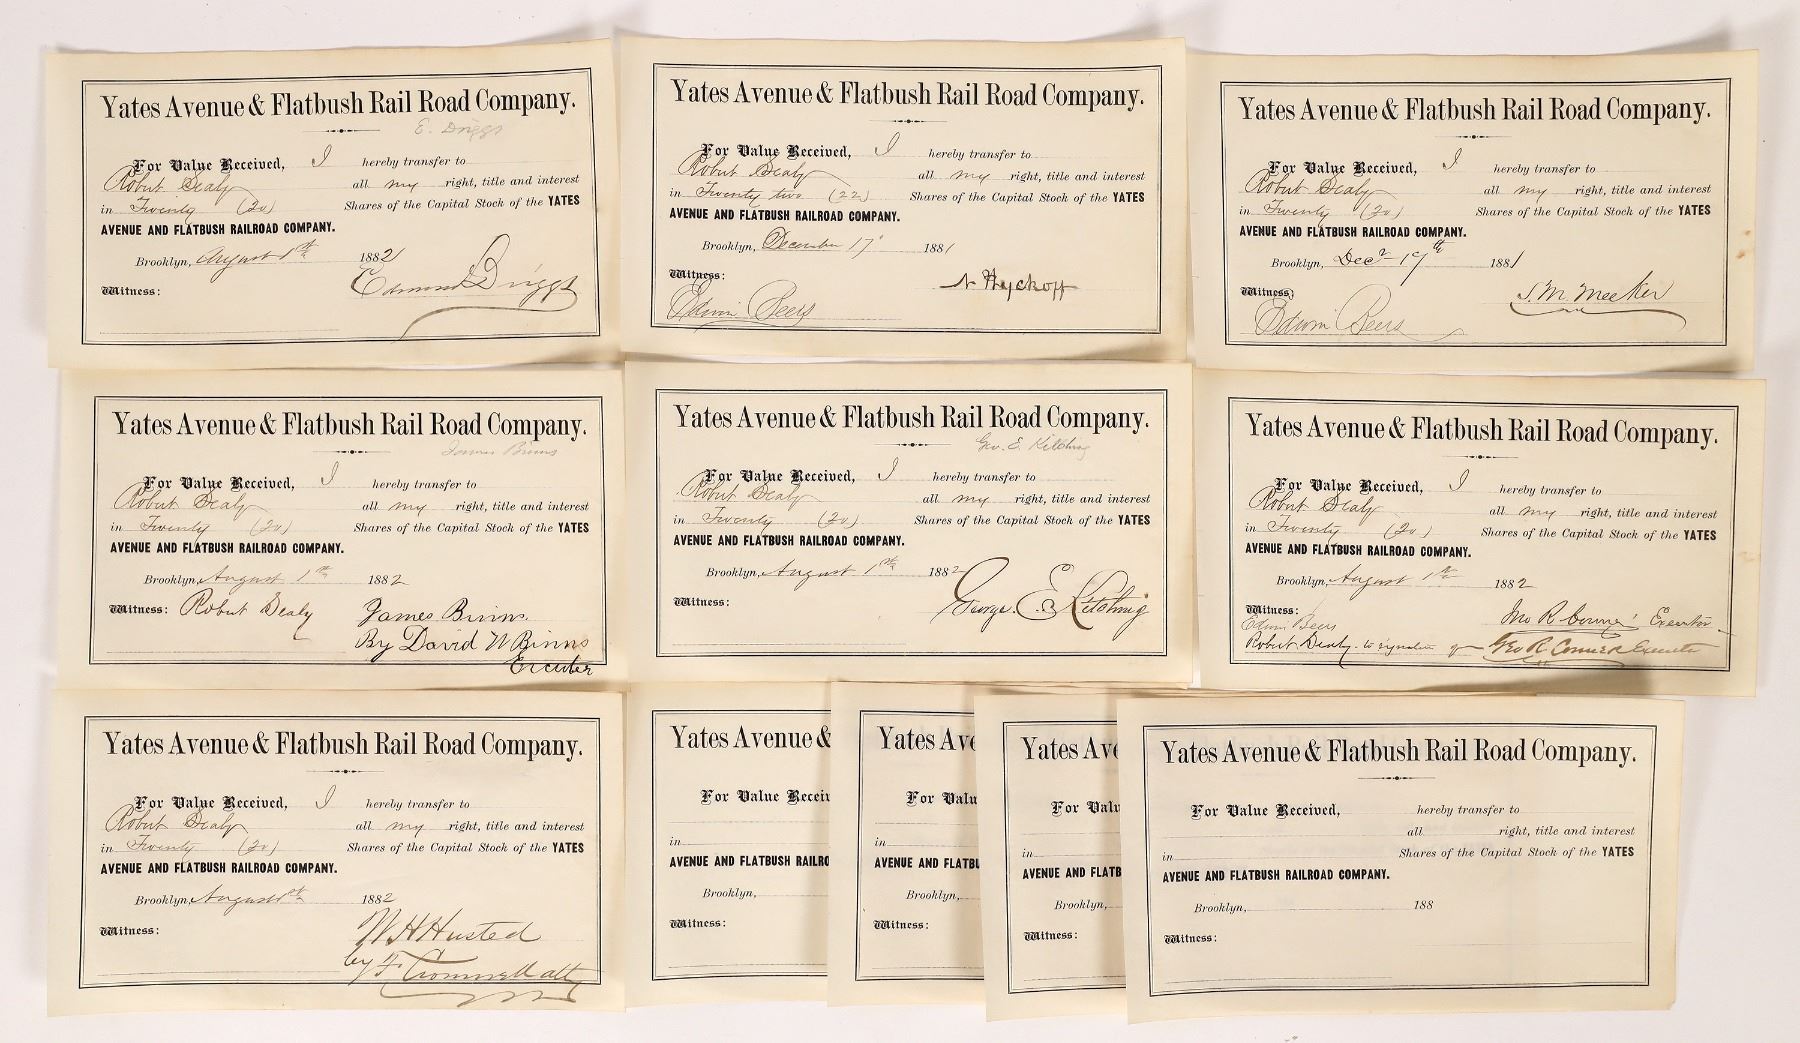 Yates Avenue & Flatbush Rail Road Company.
E. Driggs
For Value Received, I hereby transfer to
Robert Sealy all my right, title and interest
in Twenty (20) Shares of the Capital Stock of the YATES
AVENUE AND FLATBUSH RAILROAD COMPANY.
Brooklyn, August 1st 1882
Witness: Edmund Driggs
Yates Avenue & Flatbush Rail Road Company.
For Value Received, I hereby transfer to
Robert Sealy all my right, title and interest
in Twenty two (22) Shares of the Capital Stock of the YATES
AVENUE AND FLATBUSH RAILROAD COMPANY.
Brooklyn, December 17 1881
Witness: N Wyckoff
Edwin Beers
Yates Avenue & Flatbush Rail Road Company.
For Value Received, I hereby transfer to
Robert Sealy all my right, title and interest
in Twenty (20) Shares of the Capital Stock of the YATES
AVENUE AND FLATBUSH RAILROAD COMPANY.
Brooklyn, Decr 17th 1881
Witness: S. M. Meeker
Edwin Beers
Yates Avenue & Flatbush Rail Road Company.
James Binns
For Value Received, I hereby transfer to
Robert Sealy all my right, title and interest
in Twenty (20) Shares of the Capital Stock of the YATES
AVENUE AND FLATBUSH RAILROAD COMPANY.
Brooklyn, August 1st 1882
Witness: Robert Sealy James Binns.
By David W Binns
Yates Avenue & Flatbush Rail Road Company.
Geo. E. Kitching
For Value Received, I hereby transfer to
Robert Sealy all my right, title and interest
in Twenty (20) Shares of the Capital Stock of the YATES
AVENUE AND FLATBUSH RAILROAD COMPANY.
Brooklyn, August 1st 1882
Witness: George E. Kitching
Yates Avenue & Flatbush Rail Road Company.
For Value Received, I hereby transfer to
Robert Sealy all my right, title and interest
in Twenty (20) Shares of the Capital Stock of the YATES
AVENUE AND FLATBUSH RAILROAD COMPANY.
Brooklyn, August 1st 1882
Witness: Jno R Executor
Edwin Beers
Robert Sealy to signature of Geo R Conner Executor
Yates Avenue & Flatbush Rail Road Company.
For Value Received, I hereby transfer to
Robert Sealy all my right, title and interest
in Twenty (20) Shares of the Capital Stock of the YATES
AVENUE AND FLATBUSH RAILROAD COMPANY.
Brooklyn, August 1st 1882
Witness: W. H Husted
by F. Cromwell atty
Yates Avenue &
For Value Receiv
in
AVENUE AND FLATBUSH RAILRO
Brooklyn,
Witness:
Yates Ave
For Valu
in
AVENUE AND FLATBU
Brooklyn,
Witness:
Yates Av
For Valu
in
AVENUE AND FLATB
Brooklyn,
Witness:
Yates Avenue & Flatbush Rail Road Company.
For Value Received, hereby transfer to
all right, title and interest
in Shares of the Capital Stock of the YATES
AVENUE AND FLATBUSH RAILROAD COMPANY.
Brooklyn, 188
Witness: